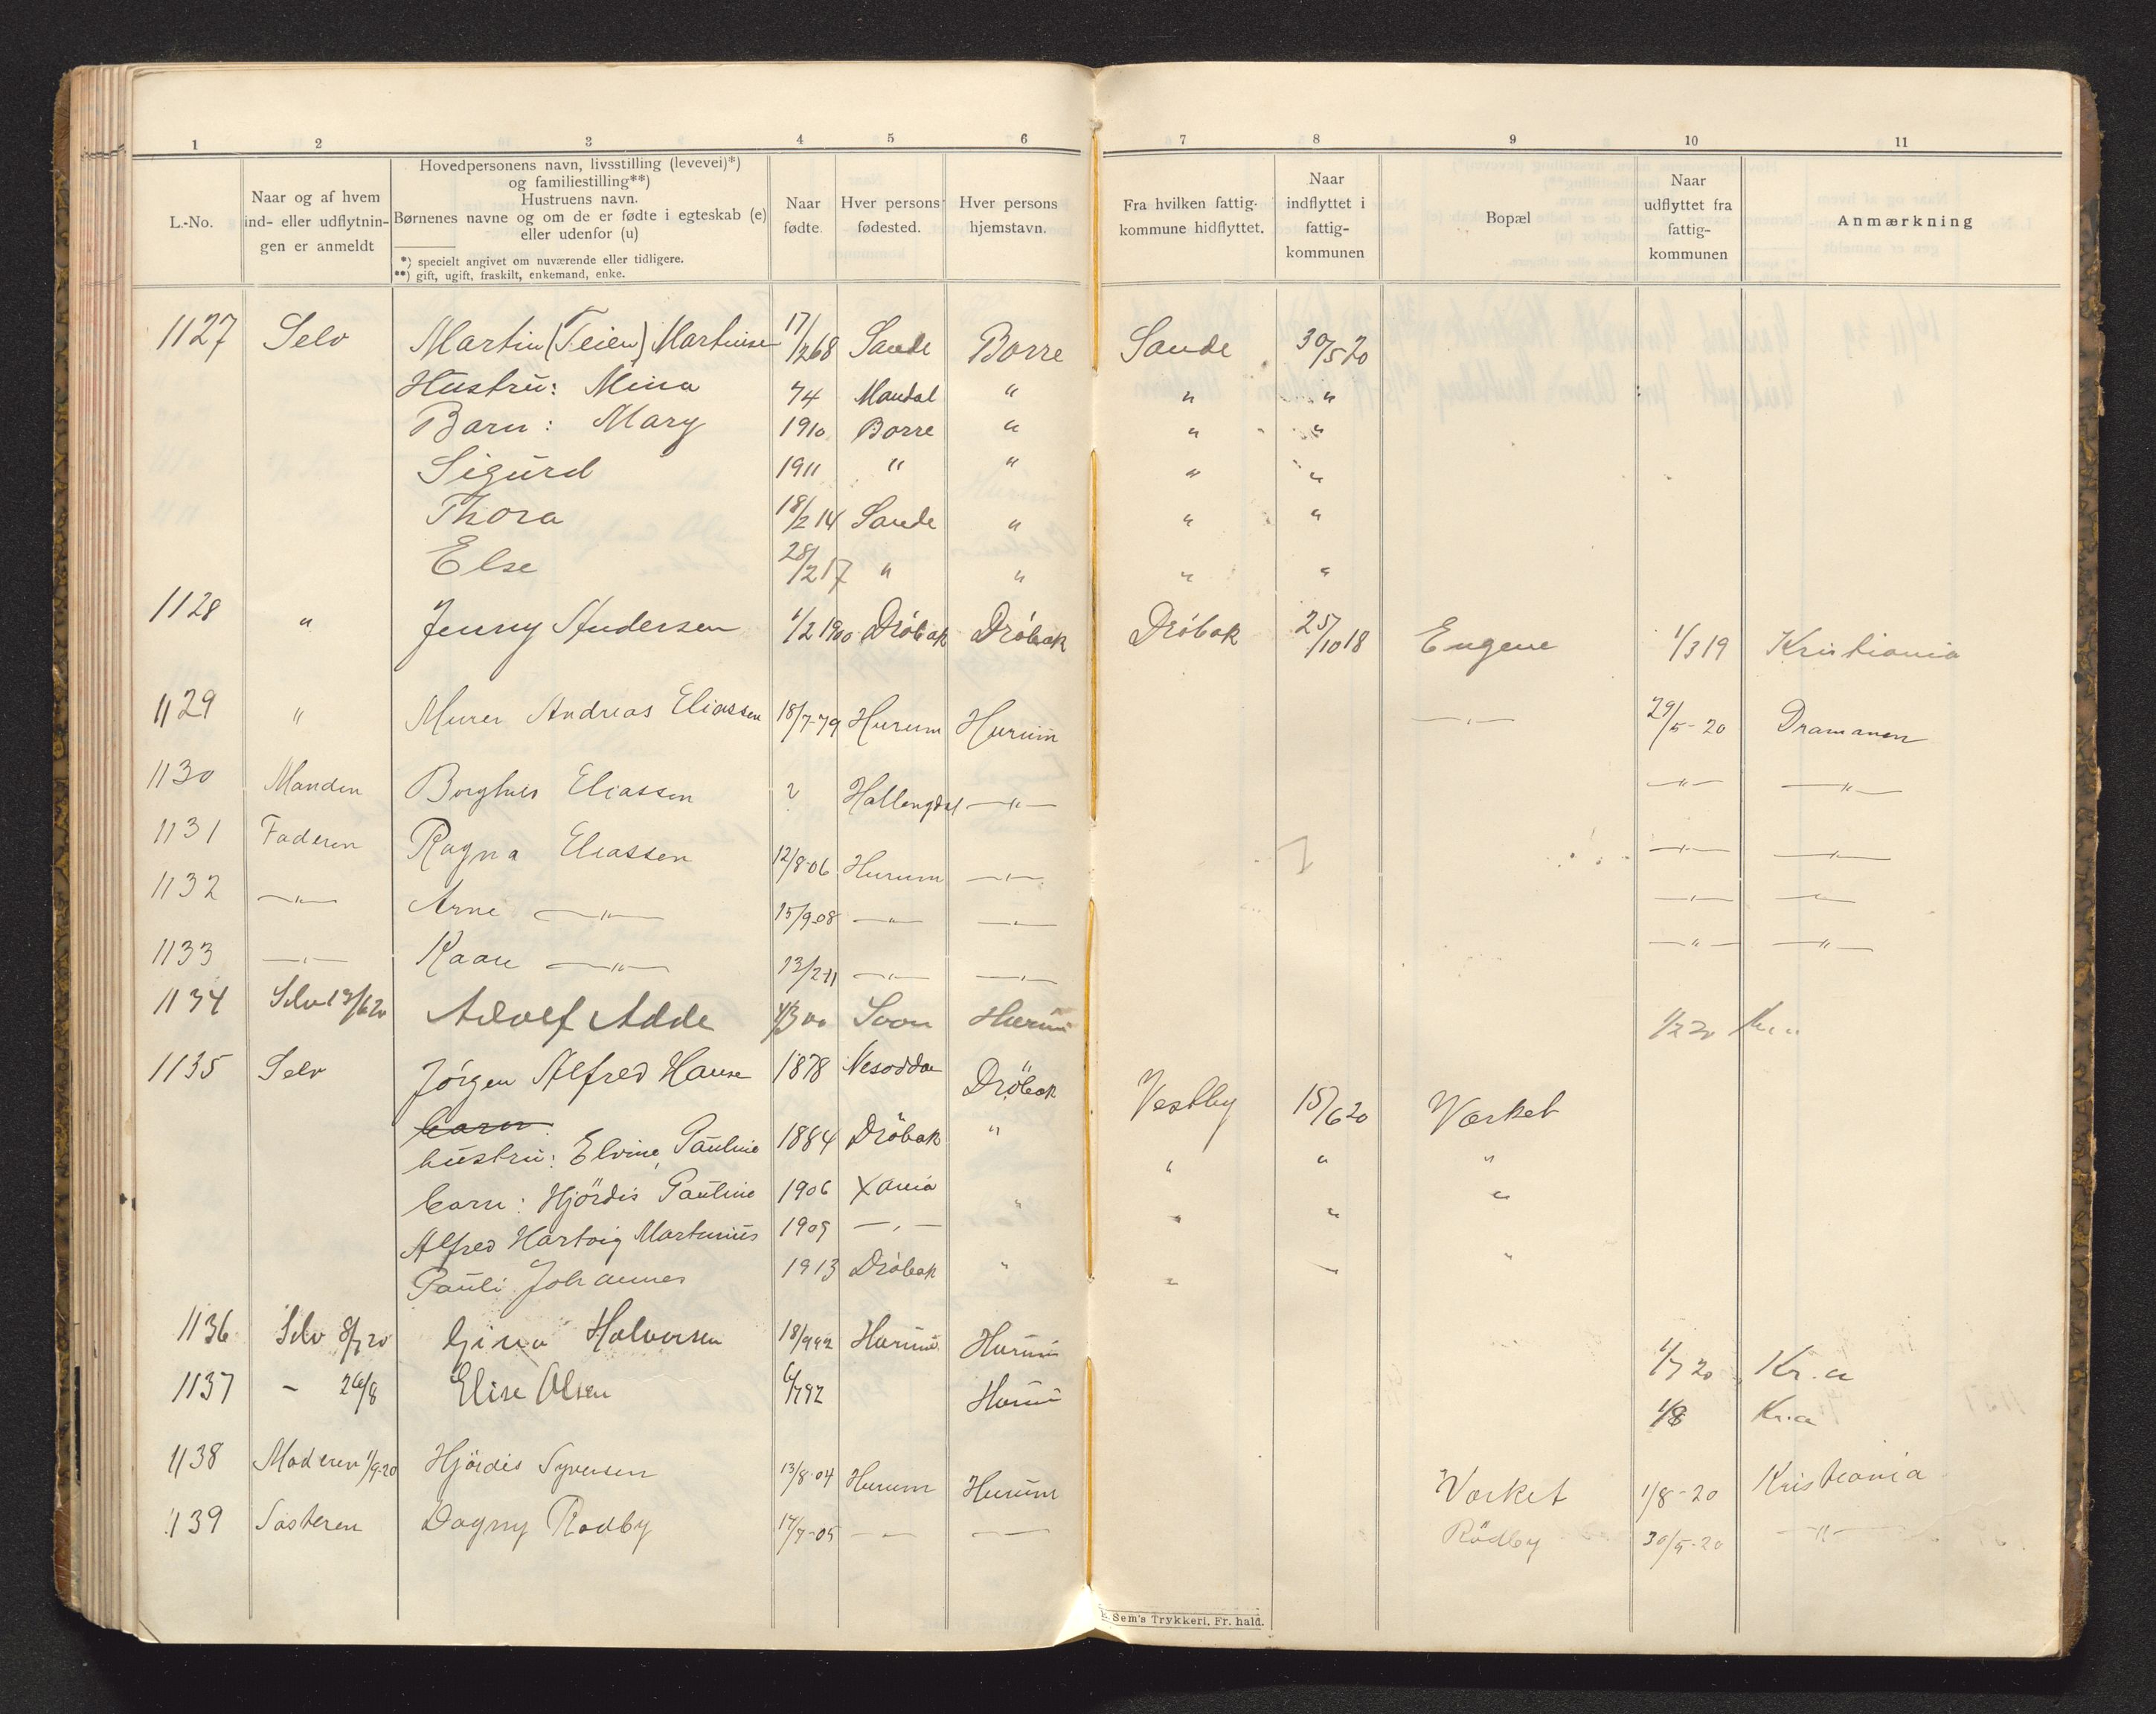 1 2 3 4 5 6 7 8 9 10 11
L.-No.
Naar og af hvem ind- eller udflytnin- gen er anmeldt
Hovedpersonens navn, livsstilling (levevei)*)
og familiestilling**)
Hustruens navn.
Børnenes navne og om de er fødte i egteskab (e)
eller udenfor (u)
*) specielt angivet om nuværende eller tidligere.
**) gift, ugift, fraskilt, enkemand, enke.
Naar fødte.
Hver persons fødested.
Hver persons hjemstavn.
Fra hvilken fattig- kommune hidflyttet.
Naar indflyttet i fattig- kommunen
Bopæl
Naar udflyttet fra fattig- kommunen
Anmærkning
1127 Selv Martin (Teien) Martinsen 17/2 68 Sande Borre Sande 30/5 20
Hustru: Mina 74 Mandal " " "
Barn: Mary 1910 Borre " " "
Sigurd 1911 " " " "
Thora 18/2 14 Sande " " "
Else 28/2 17 " " " "
1128 " Jenny Andersen 1/2 1900 Dröbak Dröbak Dröbak 25/10 18 Engene 1/3 19 Kristiania
1129 " Murer Andreas Eliassen 18/7-79 Hurum Hurum —"— 29/5-20 Dramanen
1130 Manden Borghild Eliassen ? Hallengdal —"— —"— —"—
1131 Faderen Ragna Eliassen 12/8-06 Hurum —"— —"— —"—
1132 —"— Arne —"— 15/9-08 —"— —"— —"— —"—
1133 —"— Kaare —"— 13/2-11 —"— —"— —"— —"—
1134 Selv 13/6 20 Adolf Adde 4/3 00 Soon Hurum 1/2 20 Kr.a
1135 Selv Jörgen Alfred Hansen 1878 Nesodden Dröbak Vestby 15/6 20 Værket
barn
hustru: Elvine Pauline 1884 Dröbak " " " "
barn: Hjördis Pauline 1906 Xania " " " "
Alfred Hartvig Martinius 1909 —"— " "
Pauli Johannes 1913 Dröbak " " " "
1136 Selv 8/7 20 Gina Halvorsen 18/9 92 Hurum Hurum 1/7 20 Kr.a
1137 - 26/8 Elise Olsen 6/7 92 Hurum 1/8 Kr.a
1138 Moderen 1/9-20 Hjördis Syversen 13/8-04 Hurum Hurum Værket 1/8-20 Kristiania
1139 Søsteren Dagny Rødby 17/7-05 —"— —"— Rödby 30/5-20 —"—
Sem's Trykkeri. Fr. hald.